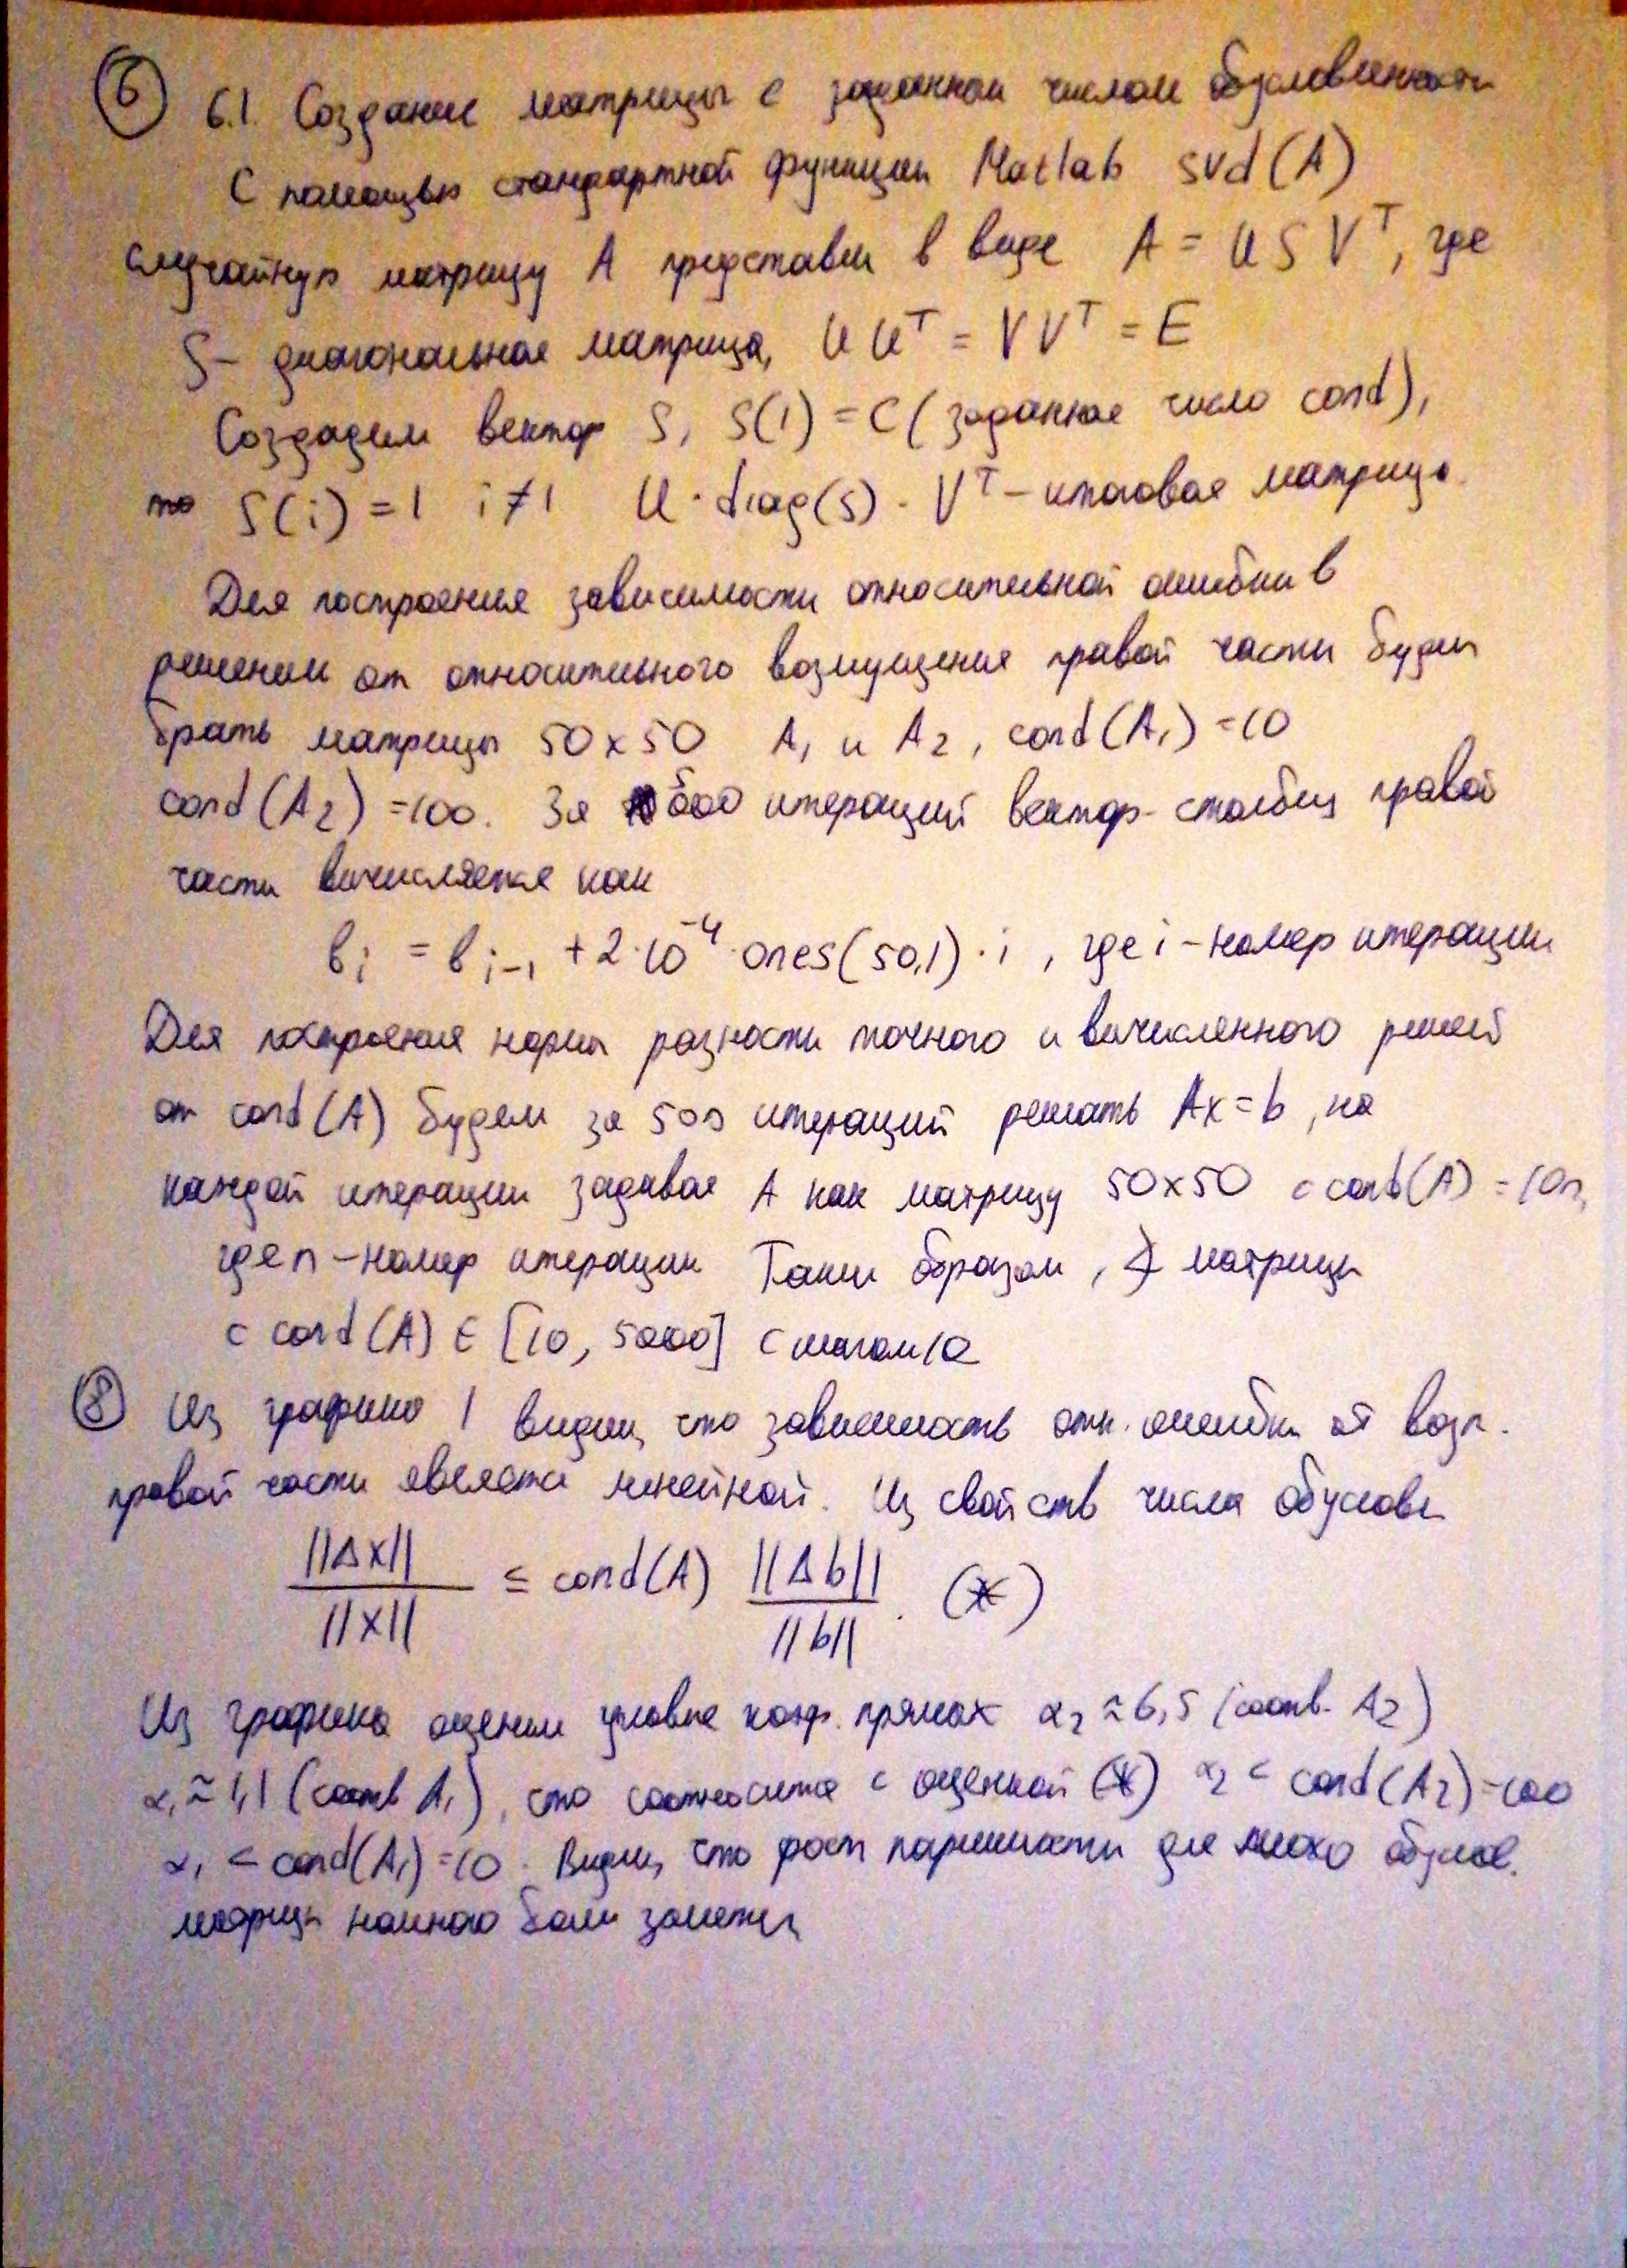 6
6.1. Создание матрицы с заданным числом обусловленности
С помощью стандартной функции Matlab svd(A)
случайную матрицу A представим в виде A = U S V^T, где
S – диагональная матрица, U U^T = V V^T = E
Создадим вектор S, S(1) = C (заданное число cond),
S(i) = 1 i ≠ 1 U · diag(S) · V^T – итоговая матрица.
Для построения зависимости относительной ошибки в
решении от относительного возмущения правой части будем
брать матрицы 50x50 A₁ и A₂, cond(A₁) = 10
cond(A₂) = 100. За итераций вектор-столбец правой
части вычисляется как
b_i = b_{i-1} + 2·10^-4 · ones(50,1) · i , где i – номер итерации
Для построения нормы разности точного и вычисленного решен
от cond(A) будем за 500 итераций решать Ax = b , на
каждой итерации задавая A как матрицу 50x50 с cond(A) = 10n,
где n – номер итерации Таким образом, матрицы
с cond(A) ∈ [10, 5000] с шагом 10
8 Из графика 1 видим, что зависимость отн. ошибки от возм.
правой части является линейной. Из свойств числа обусловл
||Δx|| / ||x|| ≤ cond(A) ||Δb|| / ||b|| . (*)
Из графика оценим угловые коэф. прямых α₂ ≈ 6,5 (соотв. A₂)
α₁ ≈ 1,1 (соотв A₁), что соотносится с оценкой (*) α₂ < cond(A₂) = 100
α₁ < cond(A₁) = 10. Видим, что рост погрешности для плохо обуслов.
матрицы намного более заметен